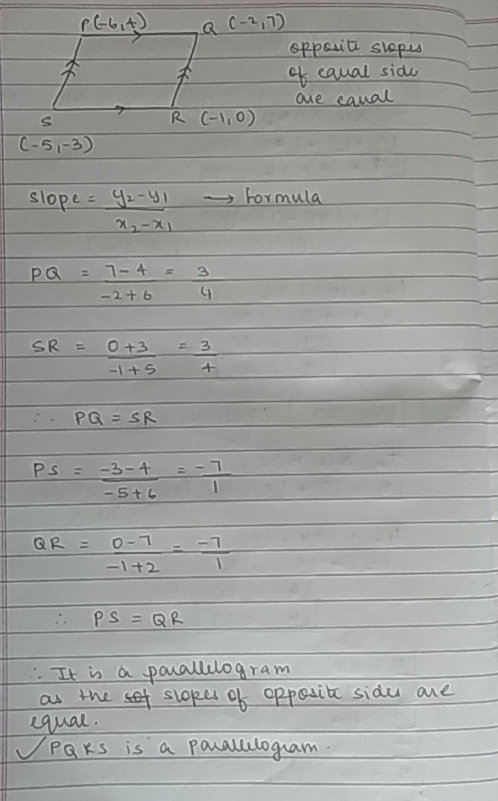 P(-6,4) Q (-2,7)
opposite slopes
of equal side
are equal
S R (-1,0)
(-5,-3)
slope = y₂-y₁ / x₂-x₁ → formula
PQ = 7-4 / -2+6 = 3 / 4
SR = 0+3 / -1+5 = 3 / 4
∴ PQ = SR
PS = -3-4 / -5+6 = -7 / 1
QR = 0-7 / -1+2 = -7 / 1
∴ PS = QR
∴ It is a parallelogram
as the slopes of opposite sides are
equal.
✓ PQRS is a parallelogram.